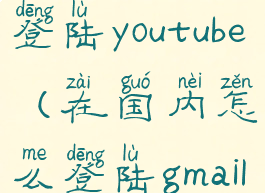 dēng lù
登陆youtube
zài guó nèi zěn
(在国内怎
me dēng lù
么登陆gmail